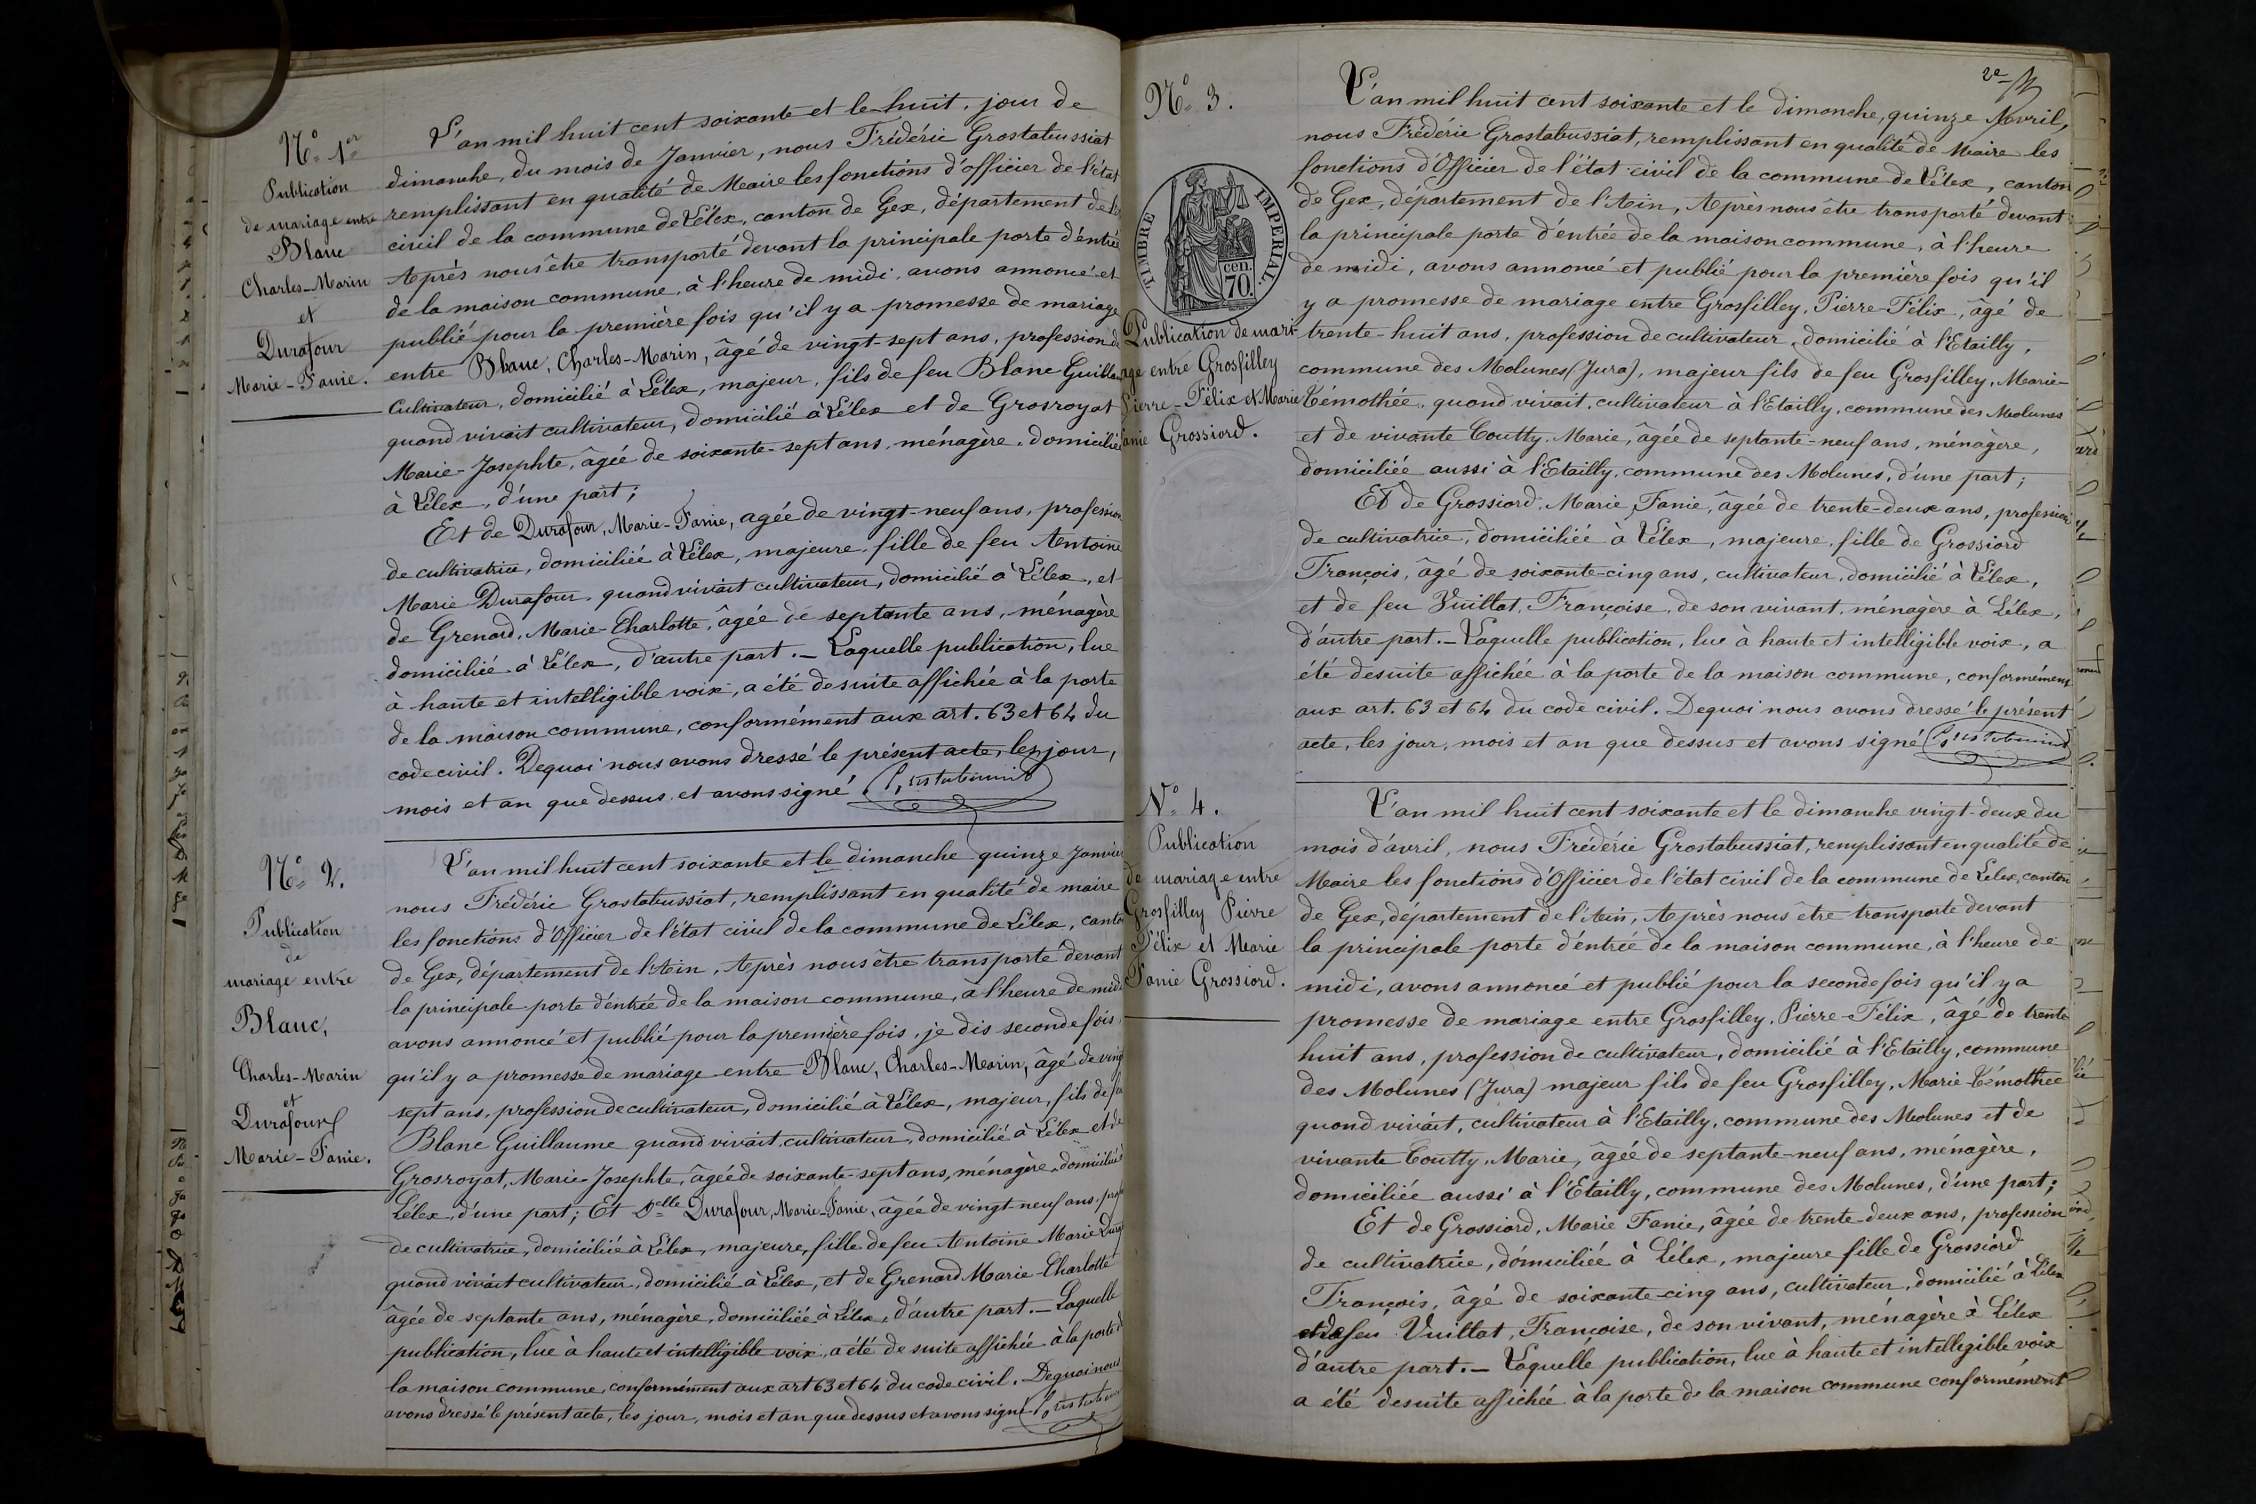 N.º 1er
Publication
de mariage entre
Blanc
Charles-Marin
et
Durafour
Marie-Fanie.
L'an mil huit cent soixante et le huit, jour de
dimanche, du mois de Janvier, nous Frédéric Grostabussiat
remplissant en qualité de Maire les fonctions d'officier de l'état
civil de la commune de Lélex, canton de Gex, département de l'Ain
Après nous être transporté devant la principale porte d'entrée
de la maison commune, à l'heure de midi, avons annoncé et
publié pour la première fois qu'il y a promesse de mariage
entre Blanc, Charles-Marin, âgé de vingt-sept ans, profession de
Cultivateur, domicilié à Lélex, majeur, fils de feu Blanc Guillau
quand vivait cultivateur, domicilié à Lélex et de Grosroyat
Marie-Josephte, âgée de soixante-sept ans, ménagère, domiciliée
à Lélex, d'une part;
Et de Durafour, Marie-Fanie, agée de vingt-neuf ans, profession
de cultivatrice, domiciliée à Lélex, majeure, fille de feu Antoine
Marie Durafour, quand vivait cultivateur, domicilié à Lélex, et
de Grenard, Marie-Charlotte, âgée de septante ans, ménagère
domiciliée à Lélex, d'autre part. — Laquelle publication, lue
à haute et intelligible voix, a été desuite affichée à la porte
de la maison commune, conformément aux art. 63 et 64 du
code civil. Dequoi nous avons dressé le présent acte, les jour,
mois et an que dessus et avons signé
N.º 2.
Publication
de
mariage entre
Blanc,
Charles-Marin
et
Durafour
Marie-Fanie.
L'an mil huit cent soixante et le dimanche quinze Janvier
nous Frédéric Grostabussiat, remplissant en qualité de maire
les fonctions d'Officier de l'état civil de la commune de Lélex, canto
de Gex, département de l'Ain, Après nous être transporté devant
la principale porte d'entrée de la maison commune, à l'heure de midi
avons annoncé et publié pour la première fois, je dis seconde fois,
qu'il y a promesse de mariage entre Blanc, Charles-Marin, âgé de ving
sept ans, profession de cultivateur, domicilié à Lélex, majeur, fils de feu
Blanc Guillaume quand vivait cultivateur, domicilié à Lélex et de
Grosroyat, Marie-Josephte, âgée de soixante-sept ans, ménagère, domiciliée à
Lélex, d'une part; Et Delle Durafour, Marie-Fanie, âgée de vingt-neuf ans, prof
de cultivatrice, domiciliée à Lélex, majeure, fille de feu Antoine Marie Dura
quand vivait cultivateur, domicilié à Lélex, et de Grenard Marie-Charlotte
âgée de septante ans, ménagère, domiciliée à Lélex, d'autre part. — Laquelle
publication, lue à haute et intelligible voix, a été de suite affichée à la porte d
la maison commune, conformément aux art 63 et 64 du code civil. Dequoi nous
avons dressé le présent acte, les jour, mois et an que dessus et avons signé
2e
N.º 3.
TIMBRE IMPERIAL
cen.
70.
Publication de mari-
age entre Grosfilley
Pierre-Félix et Marie
Fanie Grossiord.
L'an mil huit cent soixante et le dimanche, quinze Avril,
nous Frédéric Grostabussiat, remplissant en qualité de Maire les
fonctions d'Officier de l'état civil de la commune de Lélex, canton
de Gex, département de l'Ain, Après nous être transporté devant
la principale porte d'entrée de la maison commune, à l'heure
de midi, avons annoncé et publié pour la première fois qu'il
y a promesse de mariage entre Grosfilley, Pierre-Félix, âgé de
trente-huit ans, profession de cultivateur, domicilié à l'Etailly,
commune des Molunes (Jura), majeur fils de feu Grosfilley, Marie-
Témothée, quand vivait, cultivateur à l'Etailly, commune des Molunes
et de vivante Coutty, Marie, âgée de septante-neuf ans, ménagère,
domiciliée aussi à l'Etailly, commune des Molunes, d'une part;
Et de Grossiord, Marie Fanie, âgée de trente-deux ans, profession
de cultivatrice, domiciliée à Lélex, majeure, fille de Grossiord
François, âgé de soixante-cinq ans, cultivateur, domicilié à Lélex,
et de feu Vuillat, Françoise, de son vivant, ménagère à Lélex,
d'autre part. — Laquelle publication, lue à haute et intelligible voix, a
été desuite affichée à la porte de la maison commune, conformément
aux art. 63 et 64 du code civil. Dequoi nous avons dressé le présent
acte, les jour, mois et an que dessus et avons signé
N.º 4.
Publication
de mariage entre
Grosfilley Pierre
Félix et Marie
Fanie Grossiord.
L'an mil huit cent soixante et le dimanche vingt-deux du
mois d'avril, nous Frédéric Grostabussiat, remplissant en qualité de
Maire les fonctions d'Officier de l'état civil de la commune de Lelex, canton
de Gex, département de l'Ain, Après nous être transporté devant
la principale porte d'entrée de la maison commune, à l'heure de
midi, avons annoncé et publié pour la seconde fois qu'il y a
promesse de mariage entre Grosfilley, Pierre-Félix, âgé de trente
huit ans, profession de cultivateur, domicilié à l'Etailly, commune
des Molunes (Jura) majeur fils de feu Grosfilley, Marie-Témothée
quand vivait, cultivateur à l'Etailly, commune des Molunes et de
vivante Coutty, Marie, âgée de septante-neuf ans, ménagère,
domiciliée aussi à l'Etailly, commune des Molunes, d'une part;
Et de Grossiord, Marie Fanie, âgée de trente-deux ans, profession
de cultivatrice, domiciliée à Lélex, majeure fille de Grossiord
François, âgé de soixante-cinq ans, cultivateur, domicilié à Lélex
et de feu Vuillat, Françoise, de son vivant, ménagère à Lélex
d'autre part. — Laquelle publication, lue à haute et intelligible voix
a été desuite affichée à la porte de la maison commune conformément